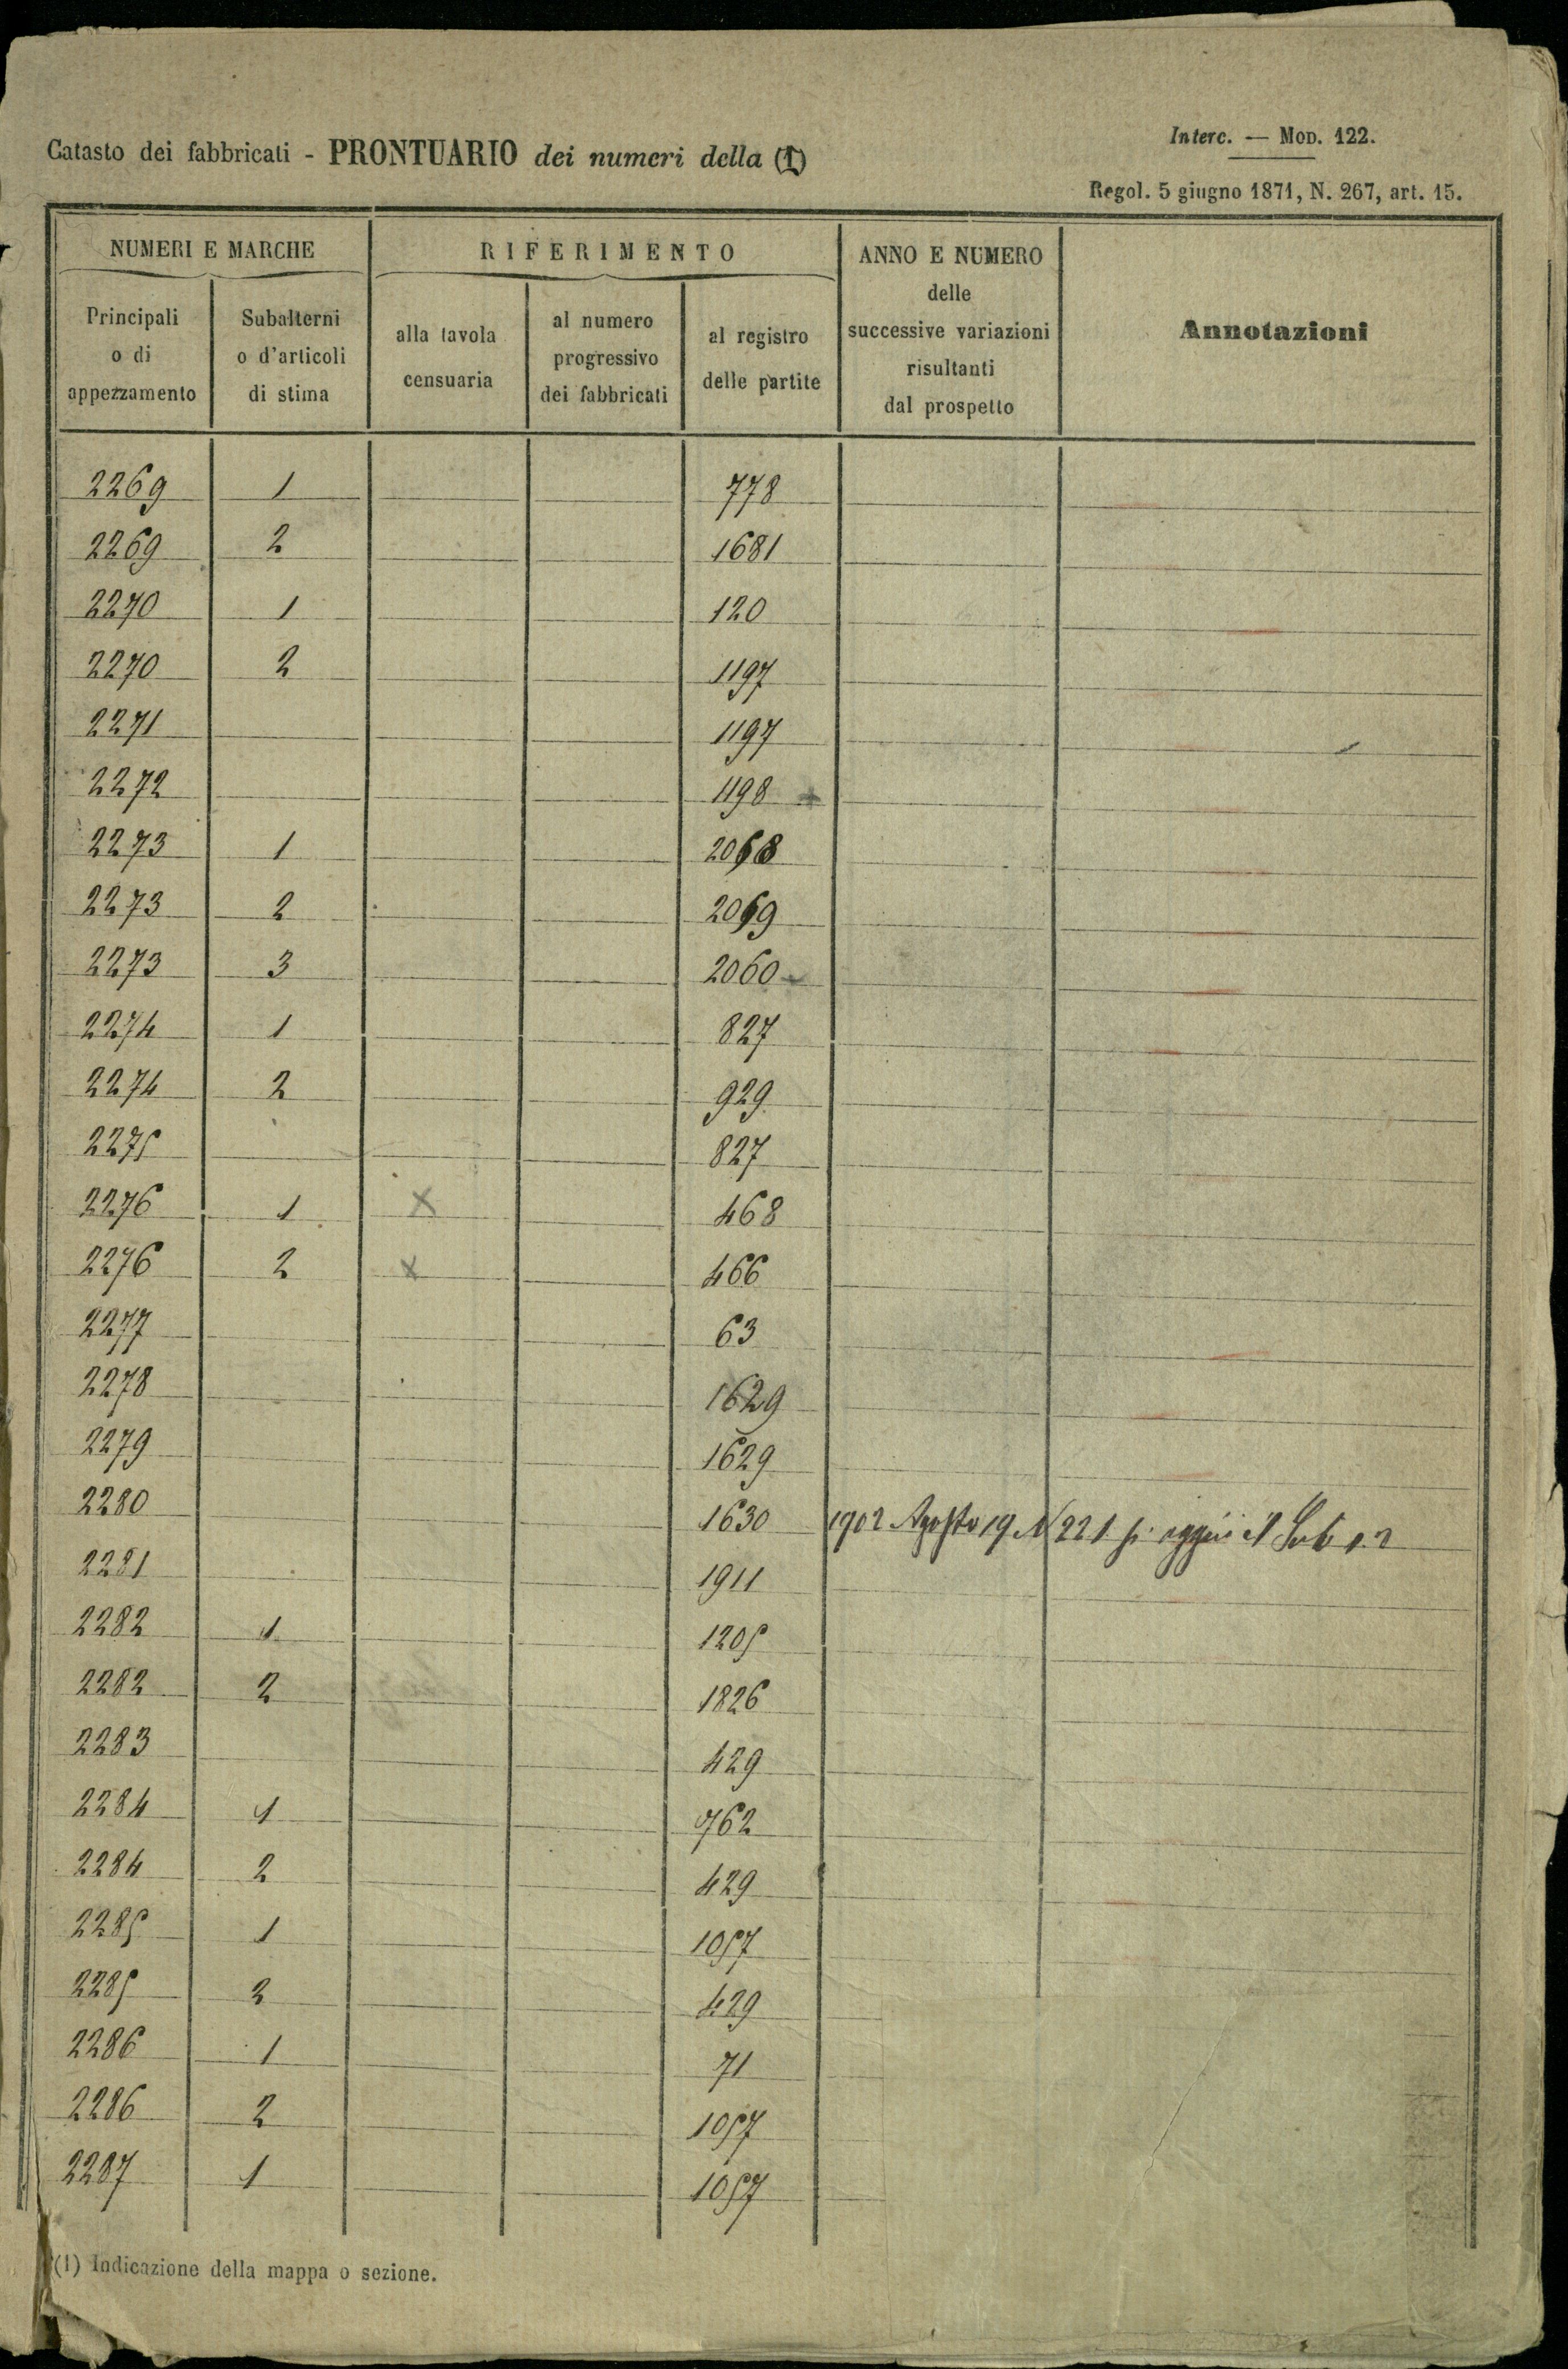 Catasto dei fabbricati - PRONTUARIO dei numeri della (1)
Interc. — Mod. 122.
Regol. 5 giugno 1871, N. 267, art. 15.
NUMERI E MARCHE
RIFERIMENTO
ANNO E NUMERO
delle
successive variazioni
risultanti
dal prospetto
Annotazioni
Principali
o di
appezzamento
Subalterni
o d'articoli
di stima
alla tavola
censuaria
al numero
progressivo
dei fabbricati
al registro
delle partite
2269 1 778
2269 2 1681
2270 1 120
2270 2 1197
2271 1197
2272 1198
2273 1 2068
2273 2 2069
2273 3 2060
2274 1 827
2274 2 929
2275 827
2276 1 x 468
2276 2 x 466
2277 63
2278 1629
2279 1629
2280 1630 1902 Agosto 19 N 221 il Sub 1.2
2281 1911
2282 1 1205
2282 2 1826
2283 429
2284 1 762
2284 2 429
2285 1 1057
2285 2 429
2286 1 71
2286 2 1057
2287 1 1057
(1) Indicazione della mappa o sezione.